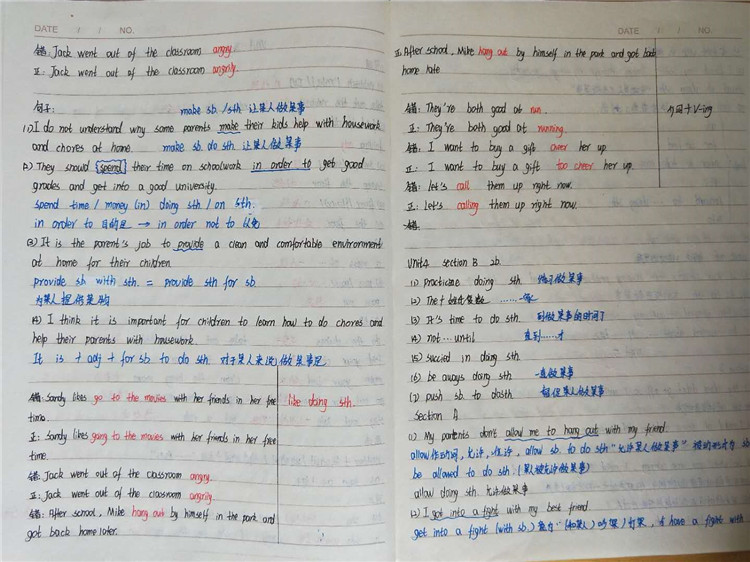 DATE / / NO.
错: Jack went out of the classroom angry.
正: Jack went out of the classroom angrily.
句子: make sb./sth 让某人做某事
(1) I do not understand why some parents make their kids help with housework
and chores at home. make sb. do sth 让某人做某事
(2) They should spend their time on schoolwork in order to get good
grades and get into a good university.
spend time / money (in) doing sth / on sth.
in order to 目的是 → in order not to 以免
(3) It is the parent's job to provide a clean and comfortable environment
at home for their children.
provide sb with sth. = provide sth for sb
为某人提供某物
(4) I think it is important for children to learn how to do chores and
help their parents with housework.
It is + adj + for sb to do sth. 对于某人来说做某事是
错: Sandy likes go to the movies with her friends in her free
time.
like doing sth.
正: Sandy likes going to the movies with her friends in her free
time.
错: Jack went out of the classroom angry.
正: Jack went out of the classroom angrily.
错: After school, Mike hang out by himself in the park and
got back home later.
DATE / / NO.
正: After school, Mike hang out by himself in the park and got back
home late
错: They're both good at run.
正: They're both good at running.
错: I want to buy a gift over her up
正: I want to buy a gift too cheer her up.
错: let's call them up right now.
正: Let's calling them up right now.
错:
+ V-ing
Unit4 section B 2b.
(1) practicse doing sth 练习做某事
(2) The + ……一家
(3) It's time to do sth. 到做某事的时间了
(4) not … until 直到……才
(5) succied in doing sth.
(6) be always doing sth 一直做某事
(7) push sb. to dosth
Section A
(1) My partents don't allow me to hang out with my friend.
allow 作动词, 允许, 准许, allow sb. to do sth "允许某人做某事"
be allowed to do sth. (某被允许做某事)
allow doing sth 允许做某事
(2) I got into a fight with my best friend.
get into a fight (with sb.) 意为 "(和某人) 吵架/打架, have a fight with